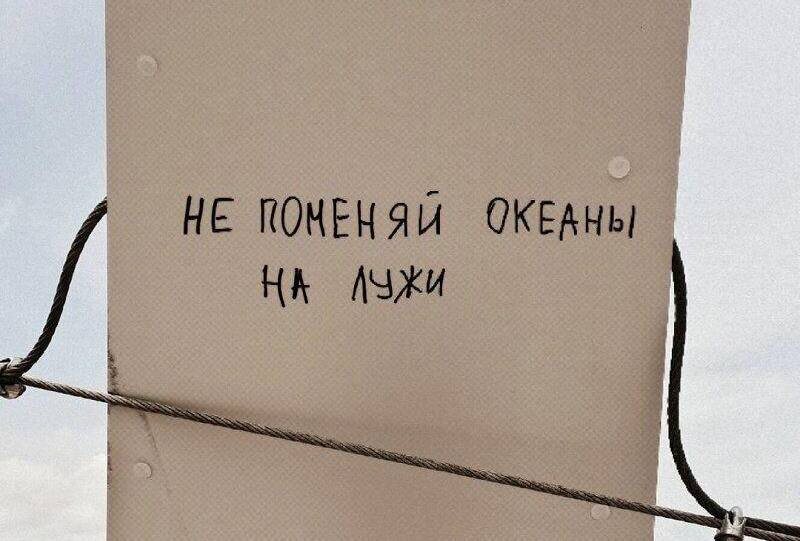 НЕ ПОМЕНЯЙ ОКЕАНЫ
НА ЛУЖИ